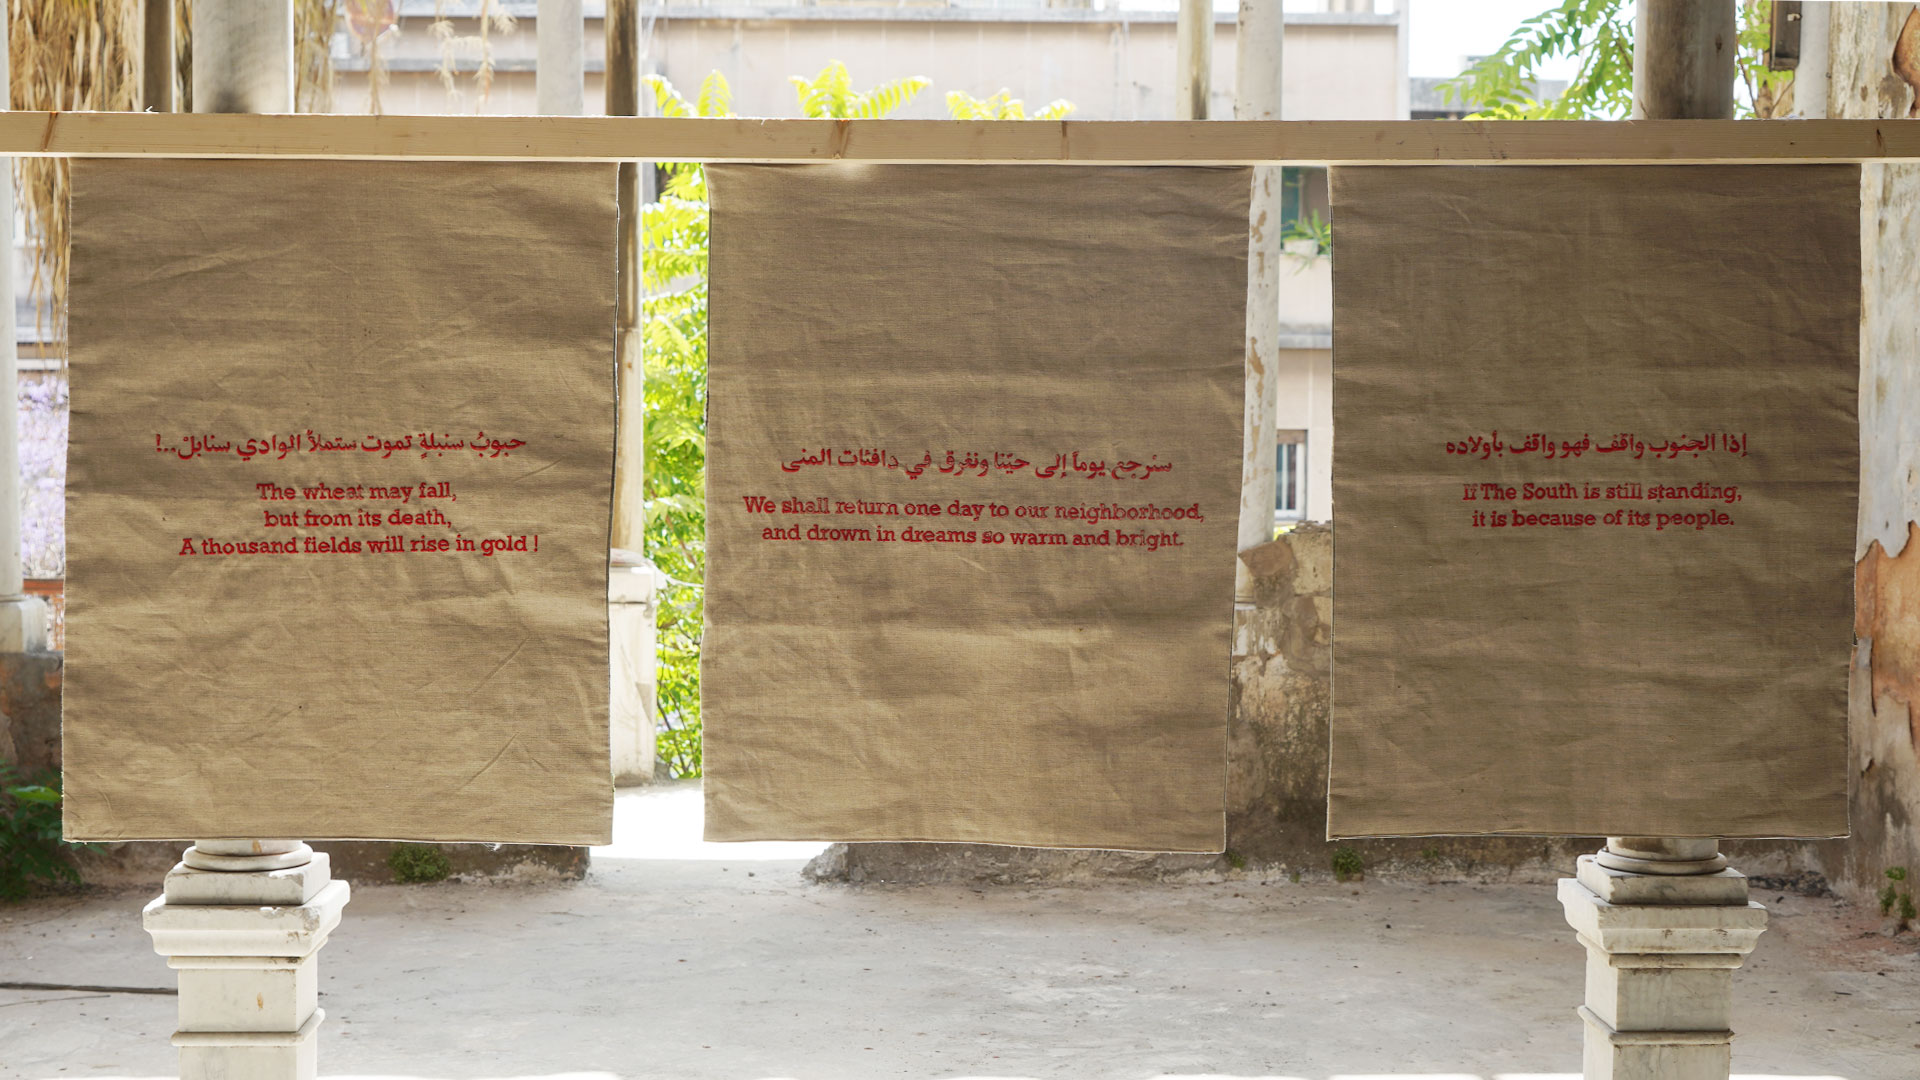 حبوبُ سنبلةٍ تموت ستملأُ الوادي سنابلْ..!
The wheat may fall,
but from its death,
A thousand fields will rise in gold !
سنرجع يوماً إلى حيّنا ونغرق في دافئات المنى
We shall return one day to our neighborhood,
and drown in dreams so warm and bright.
إذا الجنوب واقف فهو واقف بأولاده
If The South is still standing,
it is because of its people.